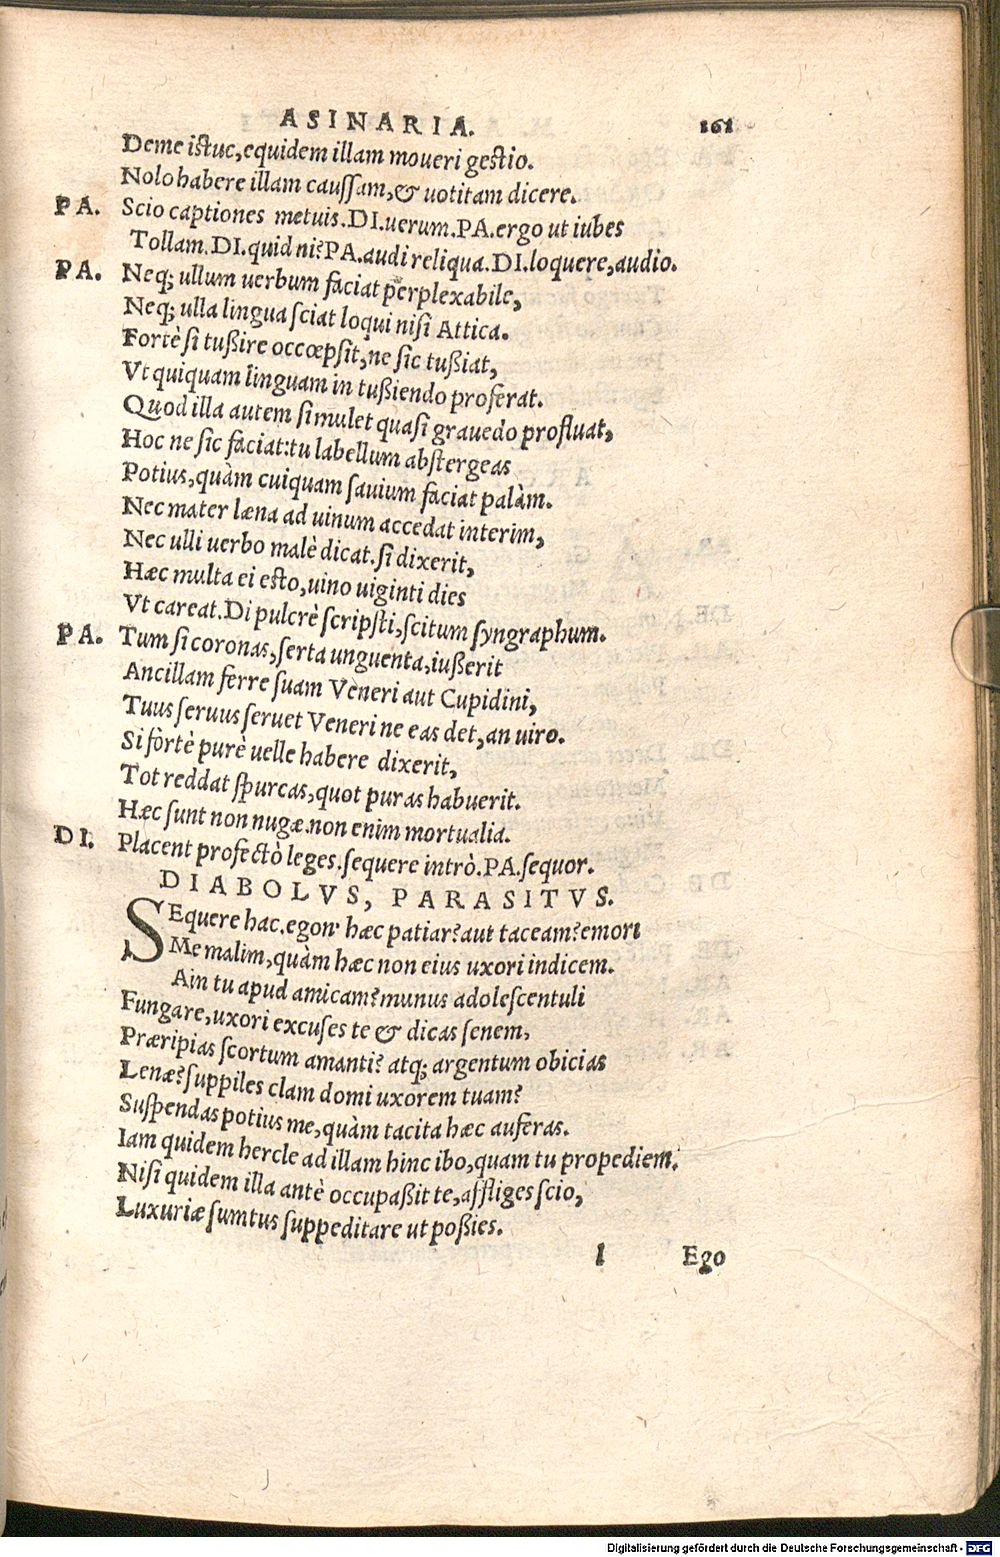 ASINARIA. 161
Deme istuc, equidem illam moveri gestio.
Nolo habere illam caussam, & uotitam dicere.
PA. Scio captiones metuis. DI. uerum. PA. ergo ut iubes
Tollam. DI. quid ni? PA. audi reliqua. DI. loquere, audio.
PA. Neq; ullum uerbum faciat perplexabile,
Neq; ulla lingua sciat loqui nisi Attica.
Fortè si tußire occœpsit, ne sic tußiat,
Vt quiquam linguam in tußiendo proferat.
Quod illa autem simulet quasi grauedo profluat,
Hoc ne sic faciat: tu labellum abstergeas
Potius, quàm cuiquam sauium faciat palàm.
Nec mater læna ad uinum accedat interim,
Nec ulli uerbo malè dicat. si dixerit,
Hæc multa ei esto, uino uiginti dies
Vt careat. Di pulcrè scripsti, scitum syngraphum.
PA. Tum si coronas, serta unguenta, iußerit
Ancillam ferre suam Veneri aut Cupidini,
Tuus seruus seruet Veneri ne eas det, an uiro.
Si fortè purè uelle habere dixerit,
Tot reddat spurcas, quot puras habuerit.
Hæc sunt non nugæ. non enim mortualia.
DI. Placent profectò leges. sequere intrò. PA. sequor.
DIABOLVS, PARASITVS.
SEquere hac. egon' hæc patiar? aut taceam? emori
Me malim, quàm hæc non eius uxori indicem.
Ain tu apud amicam? munus adolescentuli
Fungare, uxori excuses te & dicas senem,
Præripias scortum amanti? atq; argentum obicias
Lenæ? suppiles clam domi uxorem tuam?
Suspendas potius me, quàm tacita hæc auferas.
Iam quidem hercle ad illam hinc ibo, quam tu propediem.
Nisi quidem illa antè occupaßit te, affliges scio,
Luxuriæ sumtus suppeditare ut poßies.
l Ego
Digitalisierung gefördert durch die Deutsche Forschungsgemeinschaft - DFG